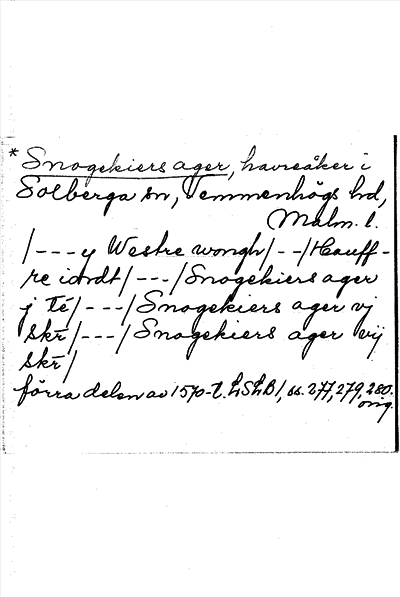 * Snogekiers ager, havreåker i
Solberga sn, Vemmenhögs hd,
Malm. l.
/---y Westre wongh/--/Hauff-
re iordt/---/Snogekiers ager
j /---/Snogekiers ager vj
skr̄/---/Snogekiers ager vij
skr̄/
förra delen av 1570-t. LSLB1, ss. 277, 279, 280.
orig.